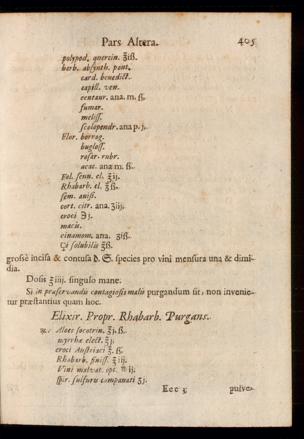 Pars Altera. 405
polypod. quercin. ℥iß.
herb. absynth. pont.
card. benedict.
capill. ven.
centaur. ana. m. ß.
fumar.
meliss.
scolopendr. ana p. j.
Flor. borrag.
bugloss.
rosar. rubr.
acac. ana m. ß.
Fol. senn. el. ℥ij.
Rhabarb. el. ℥ß.
sem. anisi.
cort. citr. ana. ʒiij.
croci ℈j.
macis.
cinamom. ana. ʒiß.
solubilis ℥ß.
grossè incisa & contusa D. S. species pro vini mensura una & dimi-
dia.
Dosis ℥iiij. singulo mane.
Si in præservando contagiosis malis purgandum sit, non invenie-
tur præstantius quam hoc.
Elixir. Propr. Rhabarb. Purgans.
℞. Aloes socotrin. ℥j. ß.
myrrhæ elect. ℥j.
croci Austriaci ℥. ß.
Rhabarb. finiss. ℥iij.
Vini malvat. opt. ij.
spir. sulfuris campanati ℥j.
Eee 3 pulve-